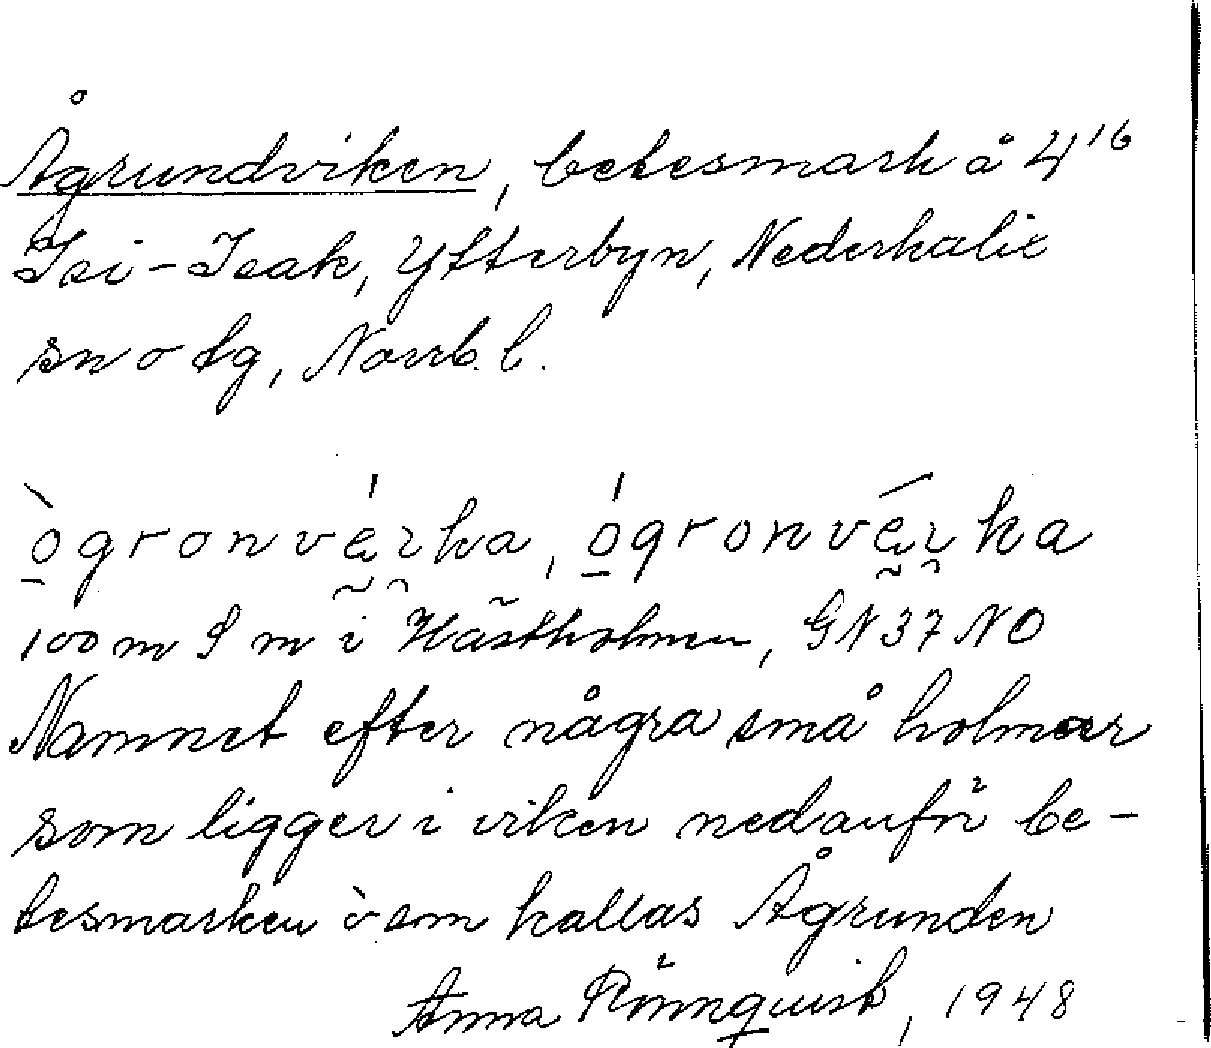 Ågrundviken, betesmark å 4¹⁶
Isi-Isak, Ytterbyn, Nederkalix
sn o tg, Norrb. l.
ò̲gronvę́ɪka, ó̲gronvę́ɪka
100 m S m i Hästholmen, GN 37 NO
Namnet efter några små holmar
som ligger i viken nedanför be-
tesmarken o som kallas Ågrunden
Anna Rönnquist, 1948